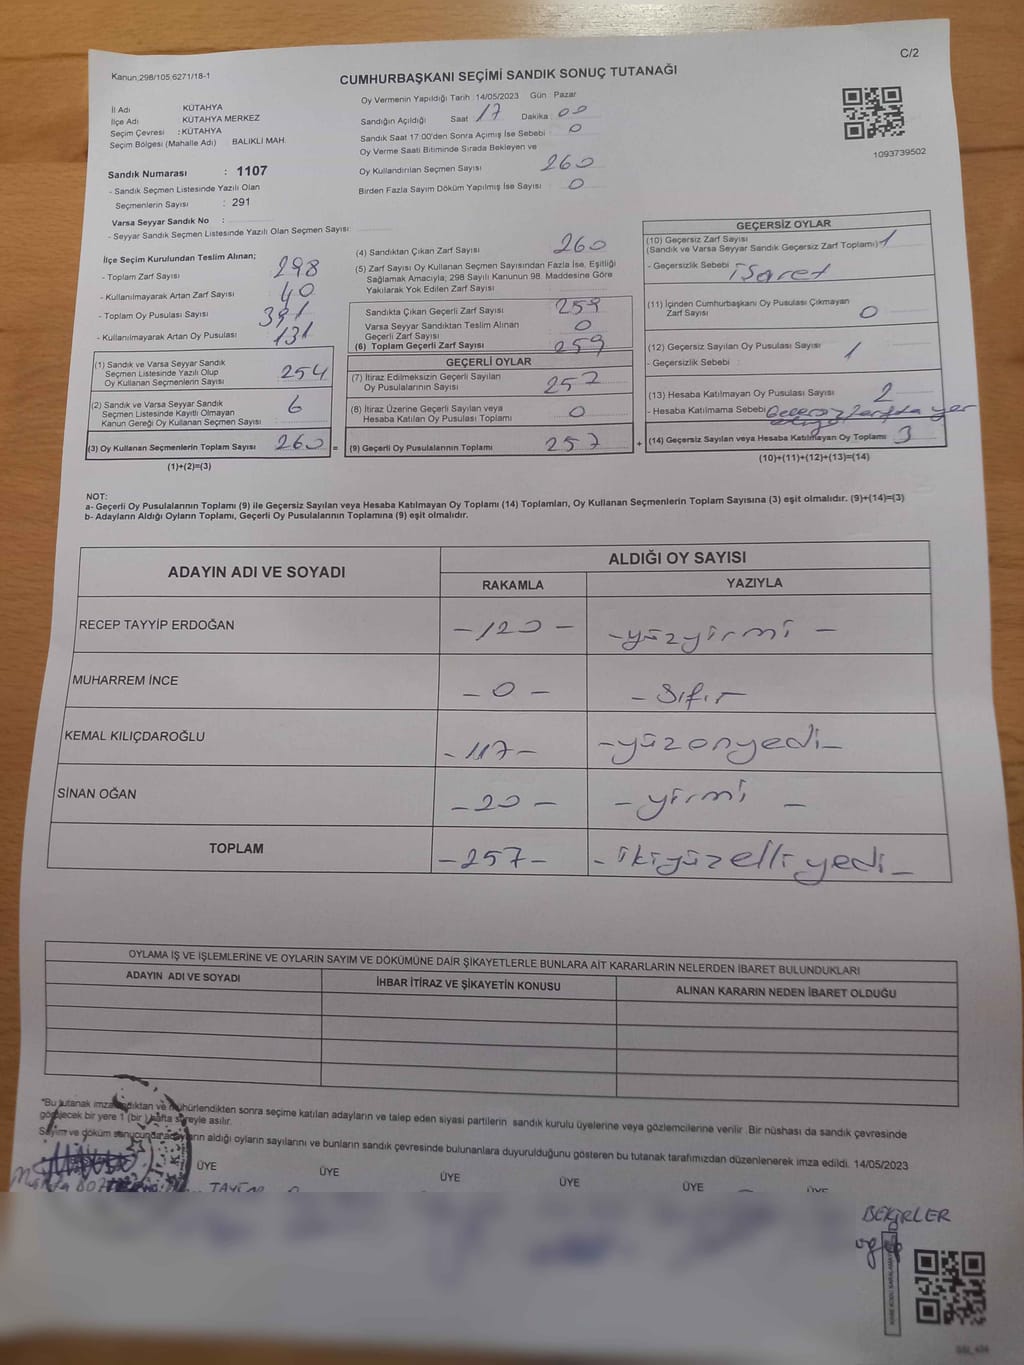 C/2
Kanun;298/105;6271/18-1
CUMHURBAŞKANI SEÇİMİ SANDIK SONUÇ TUTANAĞI
İl Adı KÜTAHYA
İlçe Adı KÜTAHYA MERKEZ
Seçim Çevresi : KÜTAHYA
Seçim Bölgesi (Mahalle Adı) BALIKLI MAH.
Oy Vermenin Yapıldığı Tarih : 14/05/2023 Gün : Pazar
Sandığın Açıldığı Saat 17 Dakika : 00
Sandık Saat 17:00'den Sonra Açılmış İse Sebebi 0
Oy Verme Saati Bitiminde Sırada Bekleyen ve
Oy Kullandırılan Seçmen Sayısı 260
Birden Fazla Sayım Döküm Yapılmış İse Sayısı : 0
1093739502
Sandık Numarası : 1107
- Sandık Seçmen Listesinde Yazılı Olan
Seçmenlerin Sayısı : 291
Varsa Seyyar Sandık No :
- Seyyar Sandık Seçmen Listesinde Yazılı Olan Seçmen Sayısı:
İlçe Seçim Kurulundan Teslim Alınan;
- Toplam Zarf Sayısı 298
- Kullanılmayarak Artan Zarf Sayısı : 40
- Toplam Oy Pusulası Sayısı : 391
- Kullanılmayarak Artan Oy Pusulası 131
(1) Sandık ve Varsa Seyyar Sandık
Seçmen Listesinde Yazılı Olup
Oy Kullanan Seçmenlerin Sayısı 254
(2) Sandık ve Varsa Seyyar Sandık
Seçmen Listesinde Kayıtlı Olmayan
Kanun Gereği Oy Kullanan Seçmen Sayısı 6
(3) Oy Kullanan Seçmenlerin Toplam Sayısı 260 =
(1)+(2)=(3)
(4) Sandıktan Çıkan Zarf Sayısı 260
(5) Zarf Sayısı Oy Kullanan Seçmen Sayısından Fazla İse, Eşitliği
Sağlamak Amacıyla; 298 Sayılı Kanunun 98. Maddesine Göre
Yakılarak Yok Edilen Zarf Sayısı
Sandıkta Çıkan Geçerli Zarf Sayısı 259
Varsa Seyyar Sandıktan Teslim Alınan
Geçerli Zarf Sayısı 0
(6) Toplam Geçerli Zarf Sayısı 259
GEÇERLİ OYLAR
(7) İtiraz Edilmeksizin Geçerli Sayılan
Oy Pusulalarının Sayısı 257
(8) İtiraz Üzerine Geçerli Sayılan veya
Hesaba Katılan Oy Pusulası Toplamı 0
(9) Geçerli Oy Pusulalarının Toplamı 257 +
GEÇERSİZ OYLAR
(10) Geçersiz Zarf Sayısı
(Sandık ve Varsa Seyyar Sandık Geçersiz Zarf Toplamı) 1
- Geçersizlik Sebebi : işaret
(11) İçinden Cumhurbaşkanı Oy Pusulası Çıkmayan
Zarf Sayısı 0
(12) Geçersiz Sayılan Oy Pusulası Sayısı 1
- Geçersizlik Sebebi :
(13) Hesaba Katılmayan Oy Pusulası Sayısı 2
- Hesaba Katılmama Sebebi Geçersiz zarfta yer
(14) Geçersiz Sayılan veya Hesaba Katılmayan Oy Toplamı 3
(10)+(11)+(12)+(13)=(14)
NOT:
a- Geçerli Oy Pusulalarının Toplamı (9) ile Geçersiz Sayılan veya Hesaba Katılmayan Oy Toplamı (14) Toplamları, Oy Kullanan Seçmenlerin Toplam Sayısına (3) eşit olmalıdır. (9)+(14)=(3)
b- Adayların Aldığı Oyların Toplamı, Geçerli Oy Pusulalarının Toplamına (9) eşit olmalıdır.
ADAYIN ADI VE SOYADI
ALDIĞI OY SAYISI
RAKAMLA YAZIYLA
RECEP TAYYİP ERDOĞAN - 120 - - yüzyirmi -
MUHARREM İNCE - 0 - - Sıfır -
KEMAL KILIÇDAROĞLU - 117 - - yüzonyedi -
SİNAN OĞAN - 20 - - yirmi -
TOPLAM - 257 - - ikiyüzelliyedi -
OYLAMA İŞ VE İŞLEMLERİNE VE OYLARIN SAYIM VE DÖKÜMÜNE DAİR ŞİKAYETLERLE BUNLARA AİT KARARLARIN NELERDEN İBARET BULUNDUKLARI
ADAYIN ADI VE SOYADI İHBAR İTİRAZ VE ŞİKAYETİN KONUSU ALINAN KARARIN NEDEN İBARET OLDUĞU
*Bu tutanak imzalandıktan ve mühürlendikten sonra seçime katılan adayların ve talep eden siyasi partilerin sandık kurulu üyelerine veya gözlemcilerine verilir. Bir nüshası da sandık çevresinde
görülecek bir yere 1 (bir) hafta süreyle asılır.
Sayım ve döküm sonucunda adayların aldığı oyların sayılarını ve bunların sandık çevresinde bulunanlara duyurulduğunu gösteren bu tutanak tarafımızdan düzenlenerek imza edildi. 14/05/2023
ÜYE ÜYE ÜYE ÜYE ÜYE ÜYE
BEKİRLER